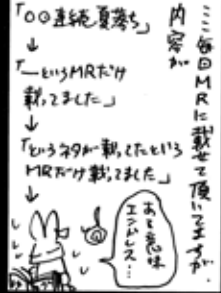 ここ毎回MRに載せて頂いてますが、
内容が
「〇〇連続夏落ち」
↓
「―というMRだけ
載ってました」
↓
「というネタが載ってたという
MRだけ載ってました」
↓
ある意味
エンドレス…